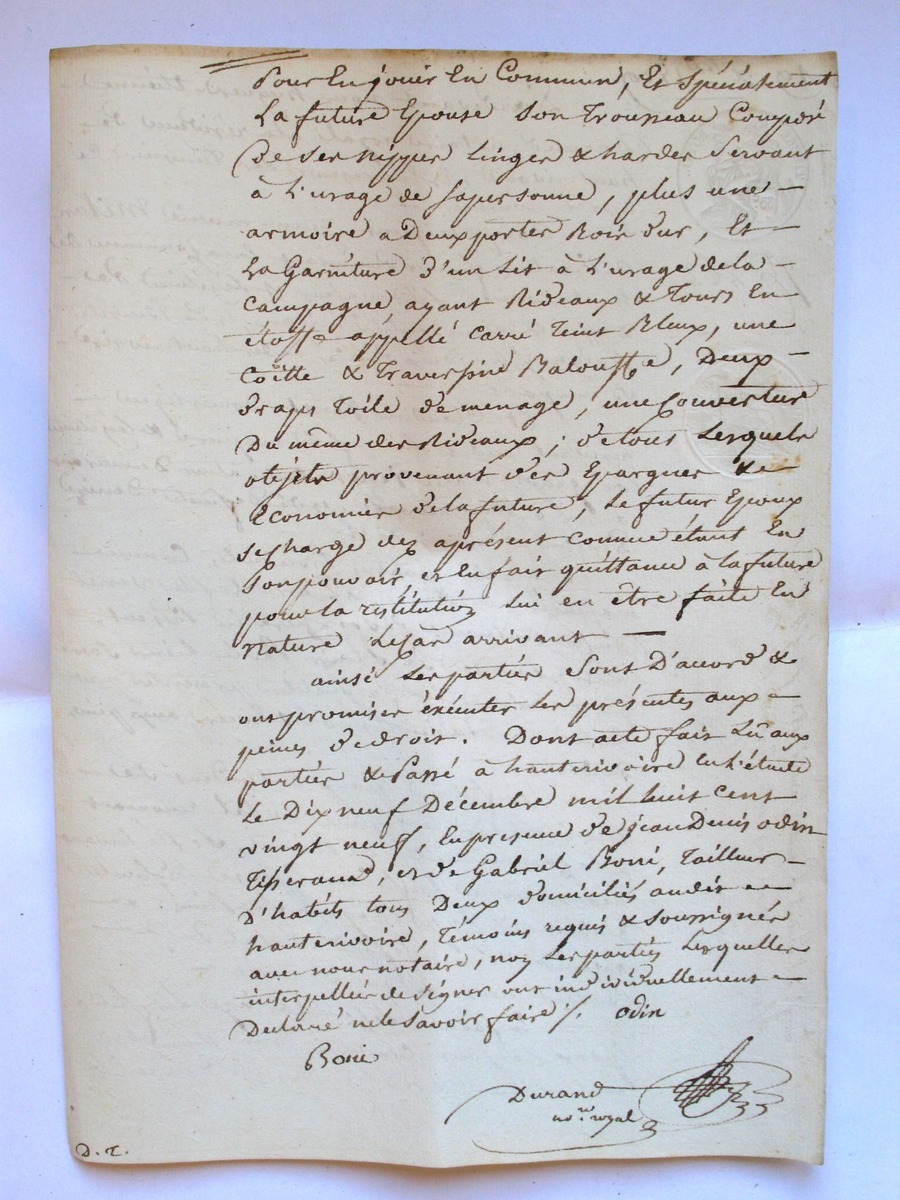 Pour en jouir en Commun, Et Spécialement
La future Epouse Son Trousseau Composé
De Ses nippes Linges & hardes Servant
à L'usage de sa personne, plus une
armoire a Deux portes Bois dur, Et
La Garniture D'un Lit à L'usage de la
Campagne, ayant Rideaux & Tours En
étoffe appellé carré Teint Bleux, une
Coitte & Traversine Balouffe, Deux
draps Toile de menage, une Couverture
Du même des Rideaux; de tous Lesquels
objets provenant des Epargnes &
Economies de la future, Le futur Epoux
se charge dez aprésent Comme étant En
Son pouvoir, et En fait quittance à la future
pour La restitution Lui en être faite En
nature Le Cas arrivant —
ainsé Les parties Sont D'accord &
ont promises éxécuter Les présentes aux
peines de droit. Dont acte fait Lû aux
parties & Passé à hauterivoire En L'étude
Le Dix neuf Décembre mil huit cent
vingt neuf, En presence de jean Denis odin
Tisserand, et de Gabriel Boni, Tailleur
D'habits tous Deux domiciliés audit
hauterivoire, Témoins requis & Soussignés
avec nous notaire, non Les parties Lesquelles
interpellées de Signer ont individuellement
Declaré ne le Savoir faire /. odin
Boni
Durand
no.re royal
D. T.